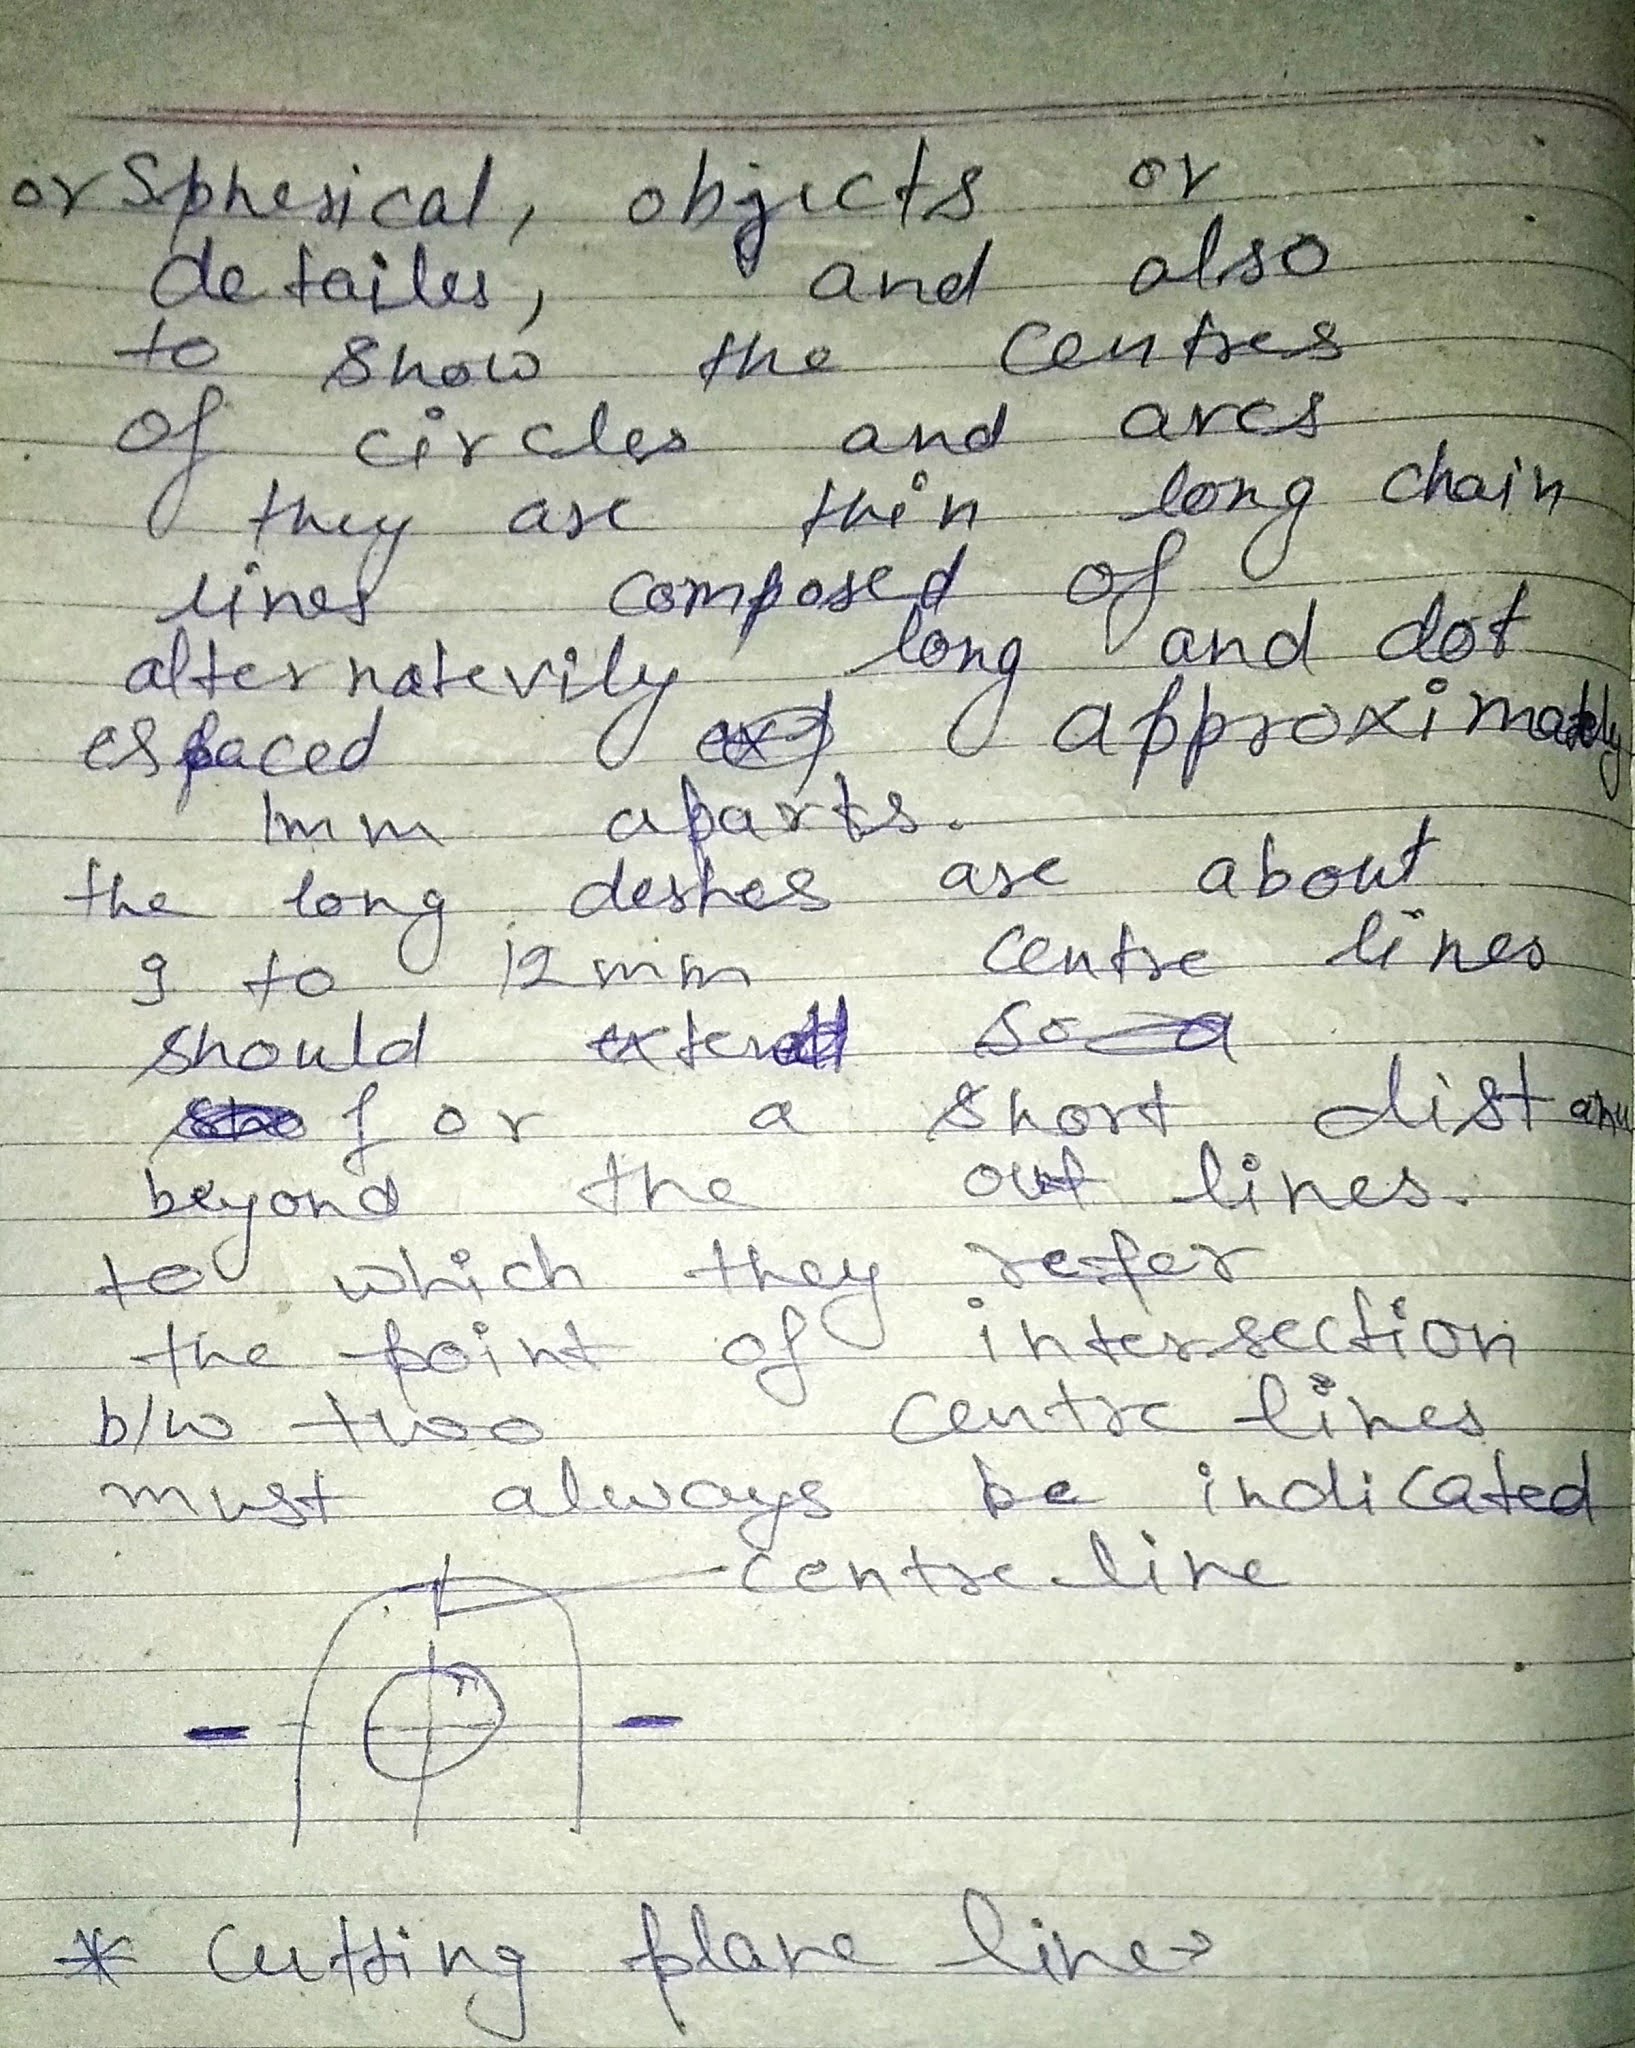 or Spherical, objects or
detailes, and also
to show the centres
of circles and arcs
they are thin long chain
lines composed of
alternatevily long and dot
espaced approximately
1mm aparts.
the long deshes are about
9 to 12 mm centre lines
should extend
for a short distance
beyond the out lines.
to which they refer
the point of intersection
b/w two centre lines
must always be indicated
centre line
* Cutting plane line